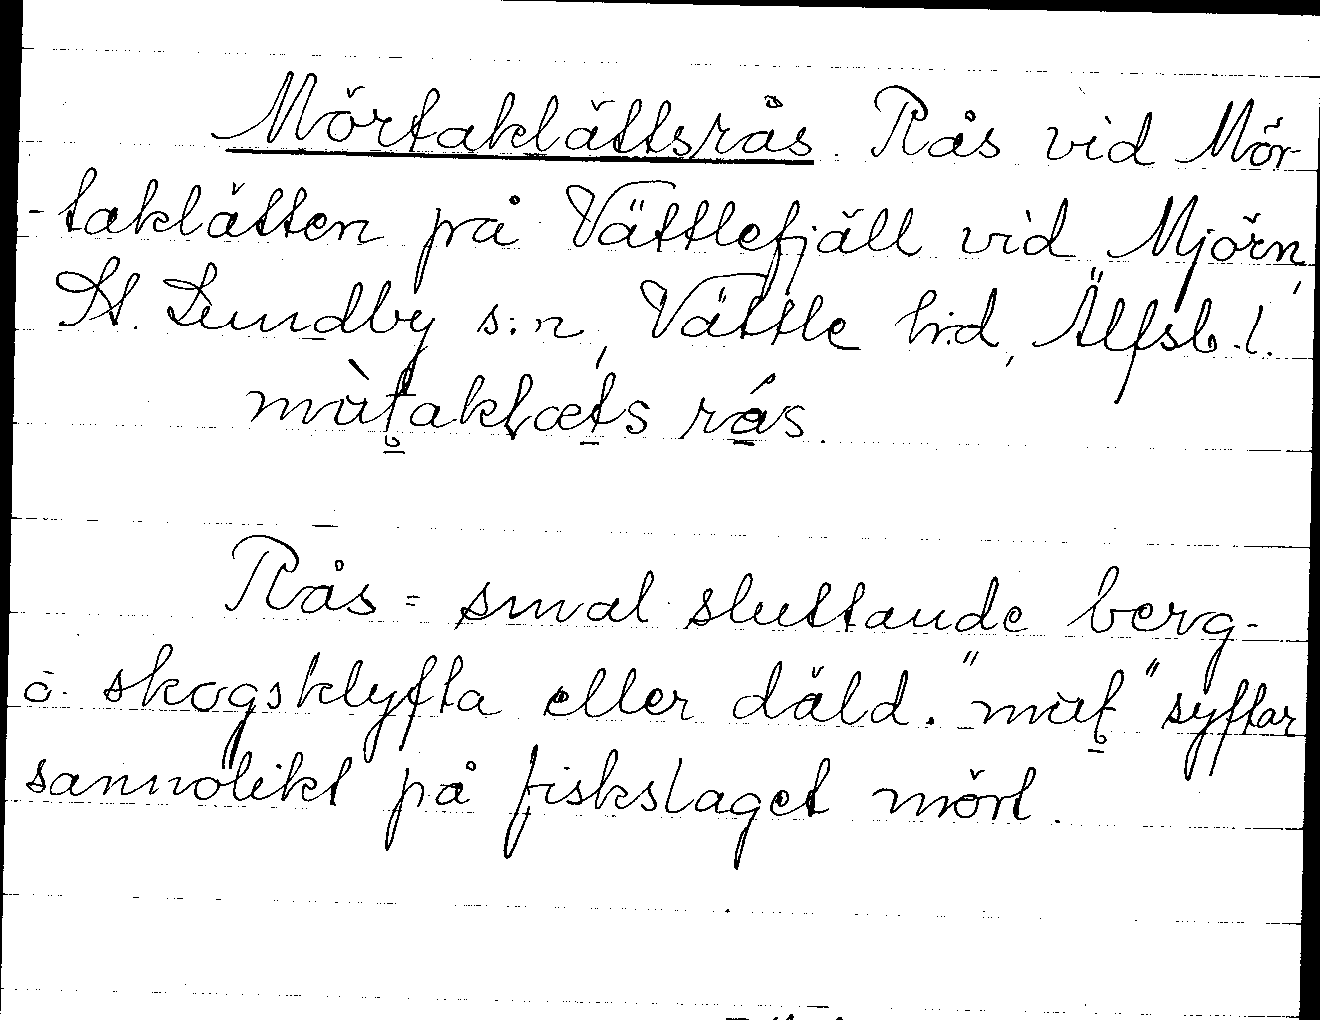 Mörtaklättsrås. Rås vid Mör-
-taklätten på Vättlefjäll vid Mjörn,
St. Lundby s:n, Vättle h:d, Älfsb. l.
mùt̰aklæts rás.
Rås = smal sluttande berg-
o. skogsklyfta eller däld. "mùt̰" syftar
sannolikt på fiskslaget mört.